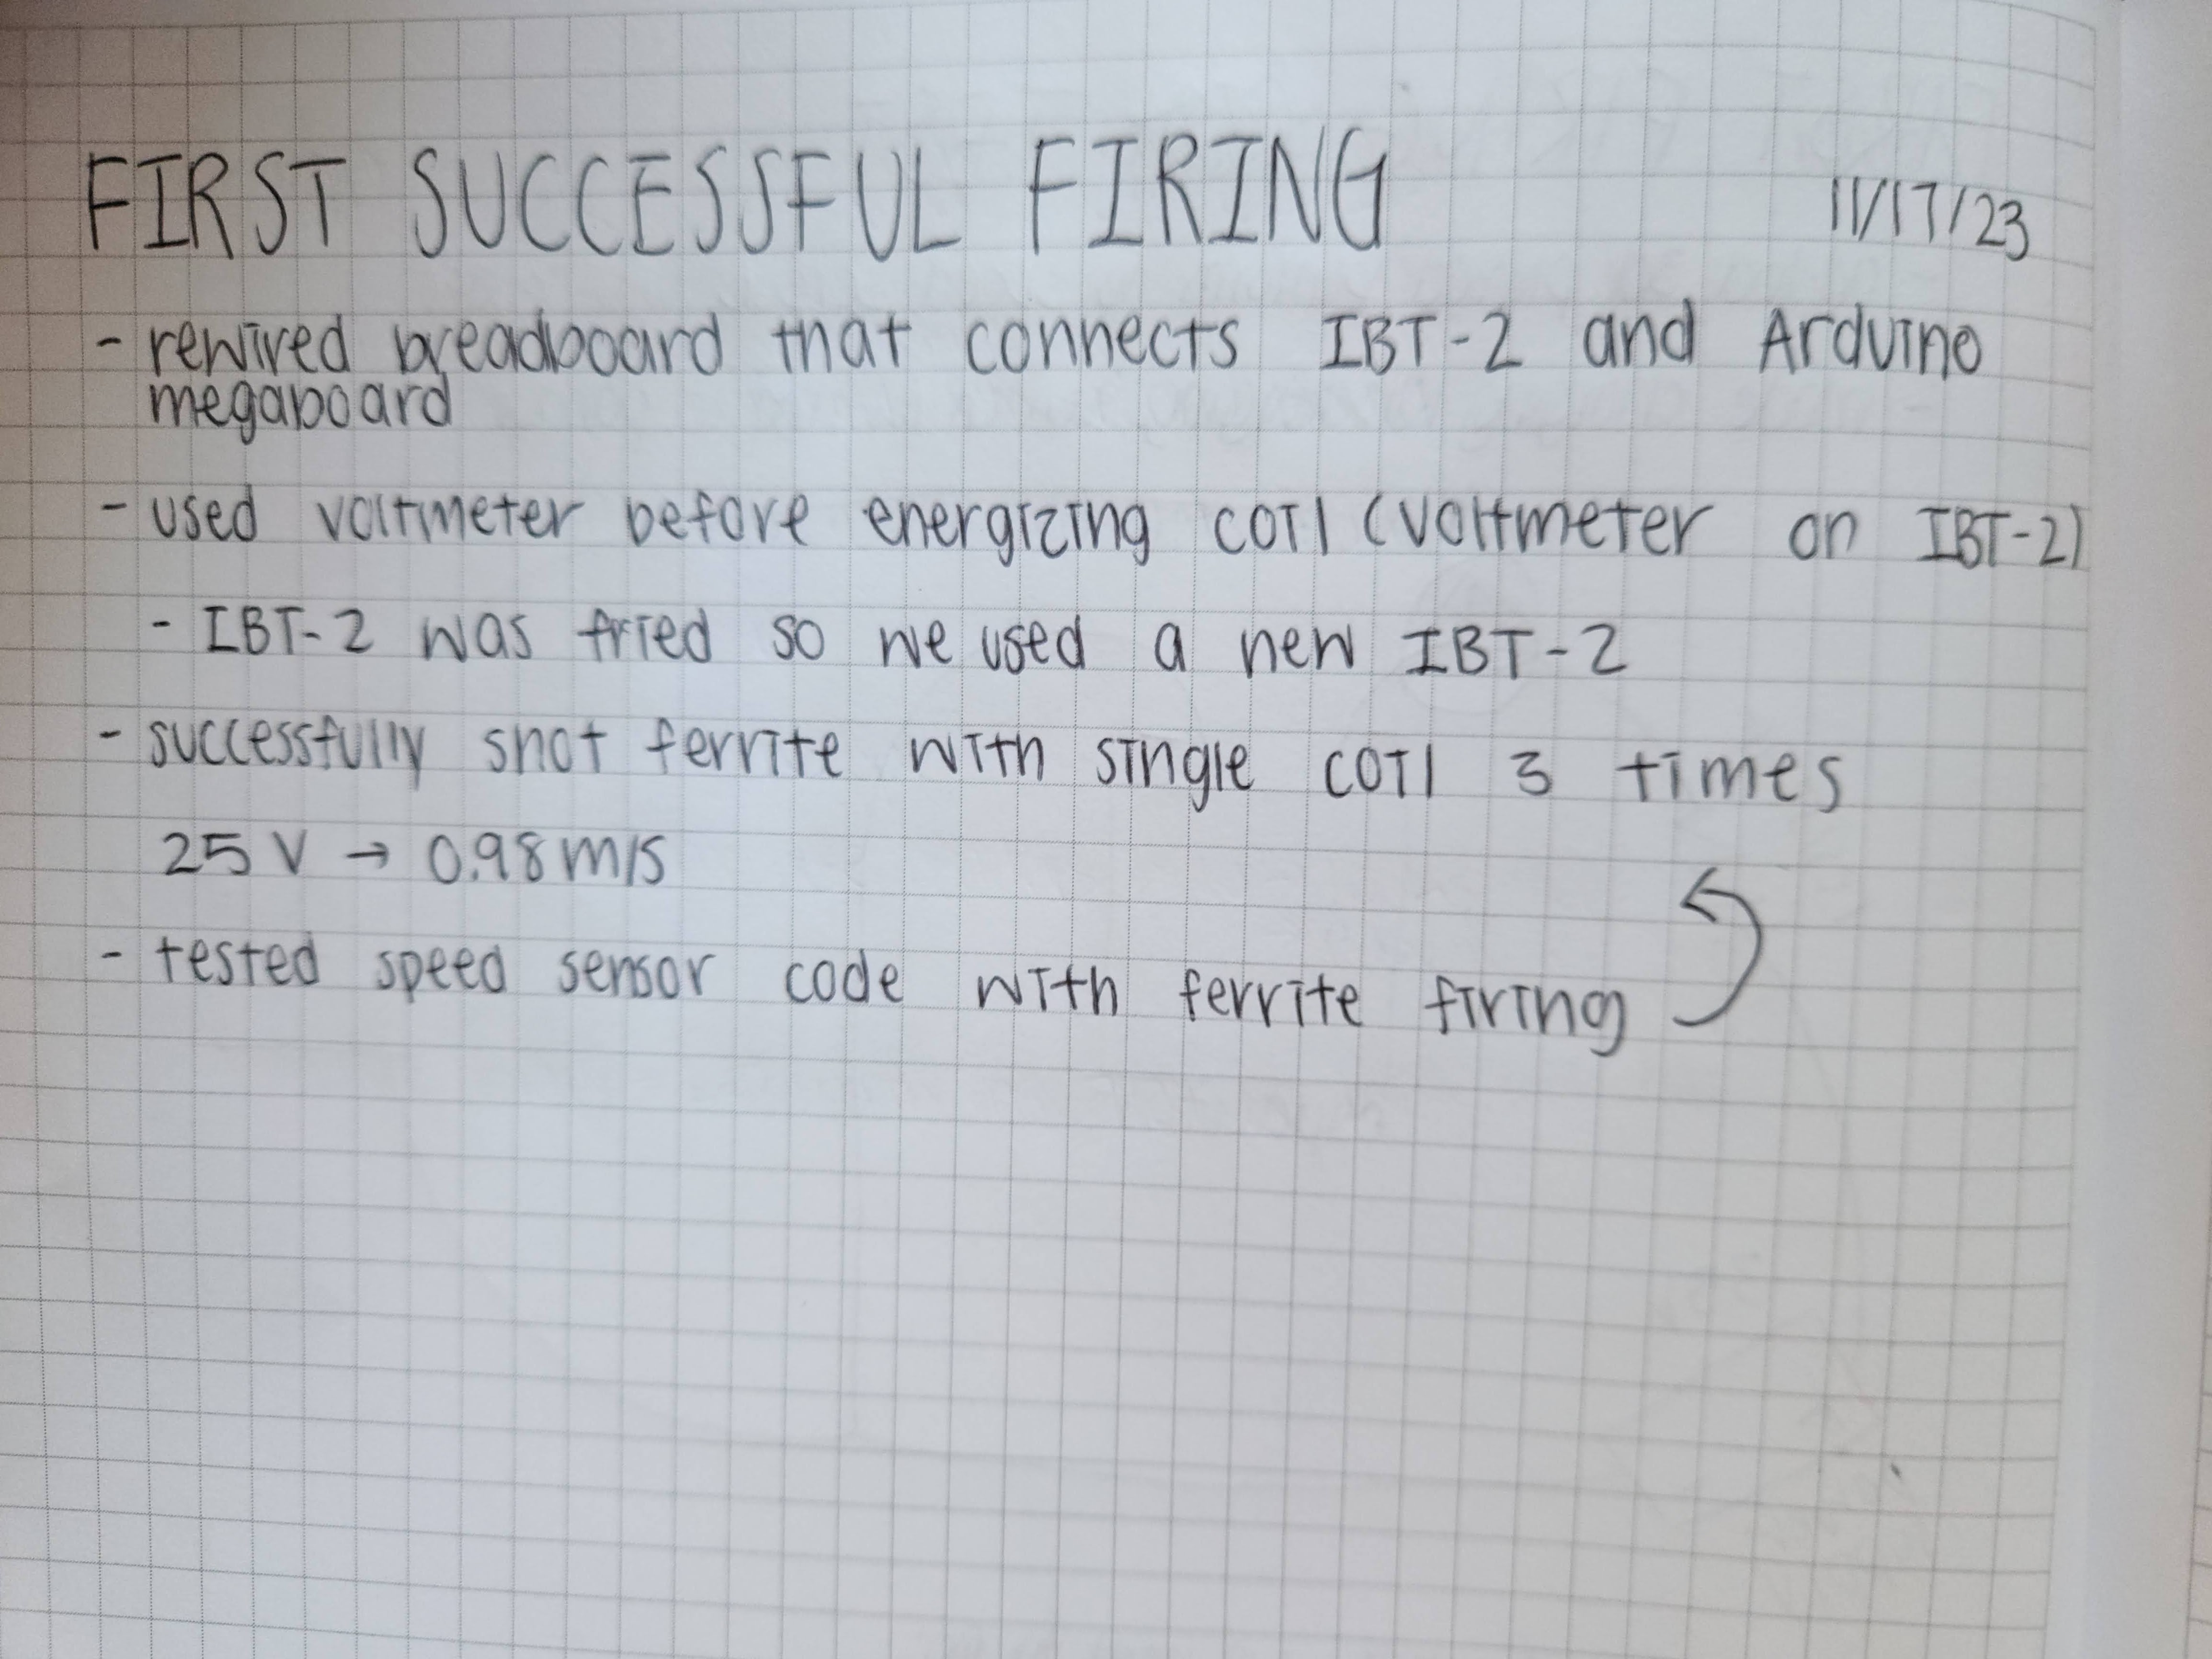 FIRST SUCCESSFUL FIRING 11/17/23
- rewired breadboard that connects IBT-2 and Arduino
megaboard
- used voltmeter before energizing coil (voltmeter on IBT-2)
- IBT-2 was fried so we used a new IBT-2
- successfully shot ferrite with single coil 3 times
25 V → 0.98 m/s
- tested speed sensor code with ferrite firing